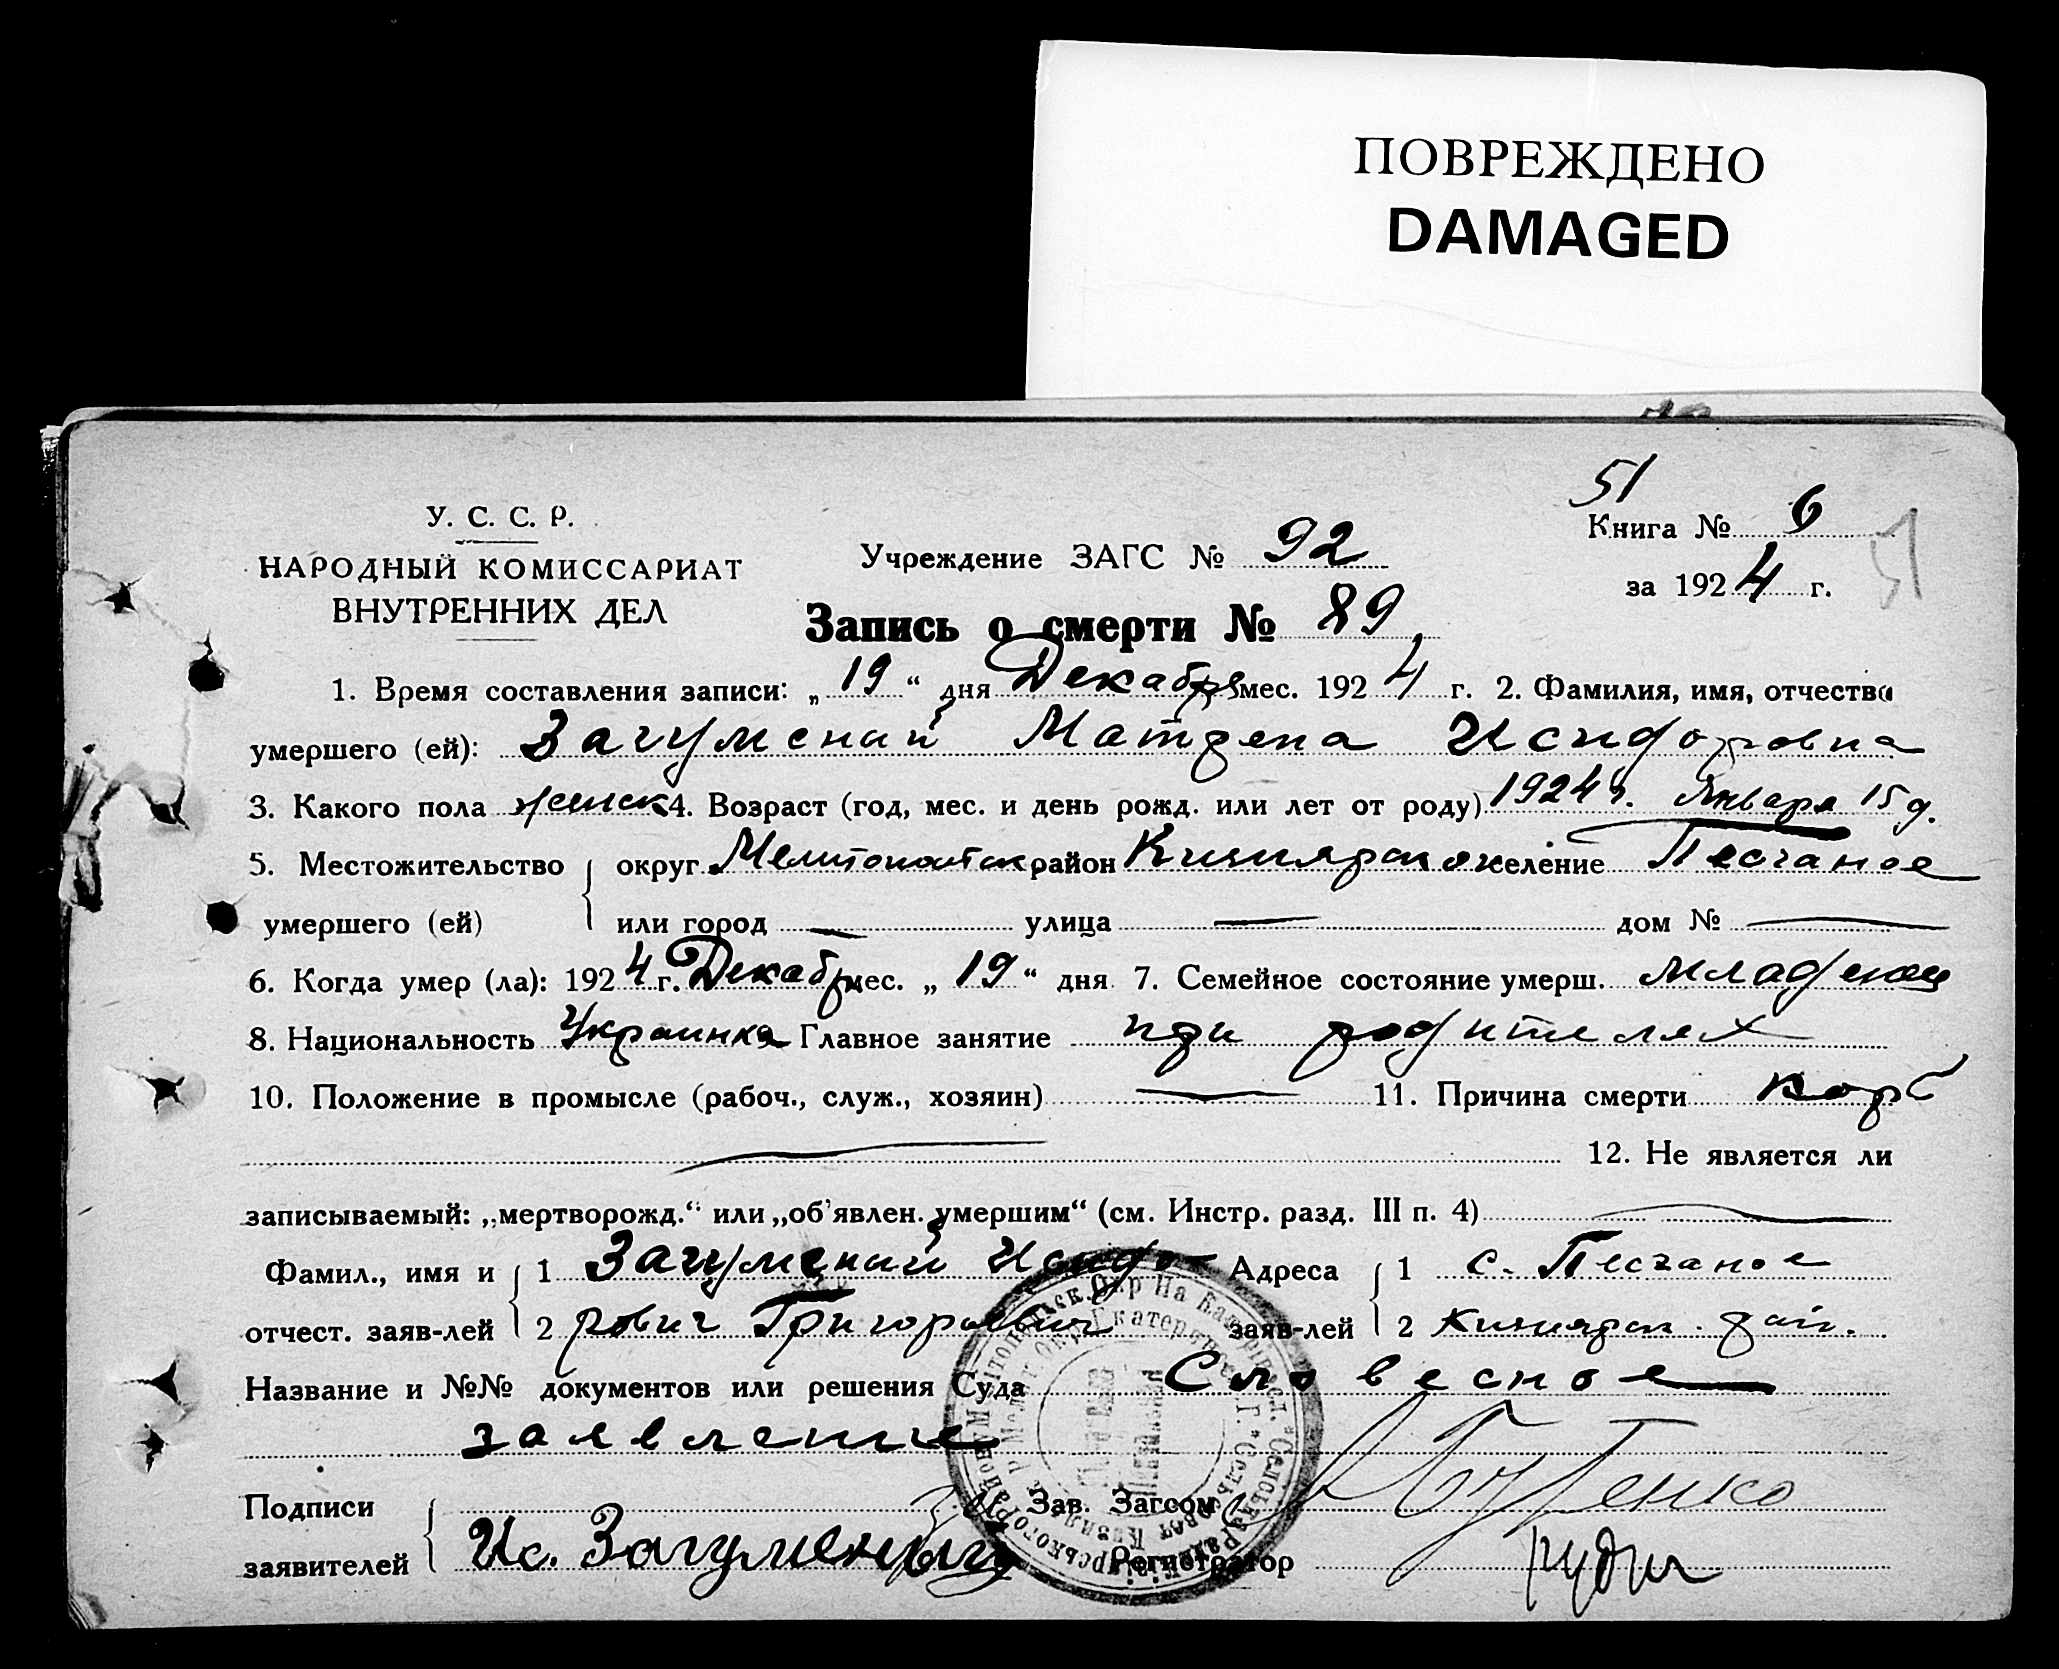 ПОВРЕЖДЕНО
DAMAGED
51
У. С. С. Р.
НАРОДНЫЙ КОМИССАРИАТ
ВНУТРЕННИХ ДЕЛ
Учреждение ЗАГС № 92
Книга № 6
за 1924 г.
51
Запись о смерти № 89
1. Время составления записи: „19“ дня Декабря мес. 1924 г. 2. Фамилия, имя, отчество
умершего (ей): Загумений Матрена Исидоровна
3. Какого пола женск 4. Возраст (год, мес. и день рожд. или лет от роду) 1924 г. Января 15 д.
5. Местожительство округ Мелитопольск район Кизиярског селение Песчаное
умершего (ей) или город — улица — дом № —
6. Когда умер (ла): 1924 г. Декабр мес. „19“ дня 7. Семейное состояние умерш. младенец
8. Национальность Украинка 9. Главное занятие при родителях
10. Положение в промысле (рабоч., служ., хозяин) — 11. Причина смерти корь
— 12. Не является ли
записываемый: „мертворожд.“ или „об'явлен. умершим“ (см. Инстр. разд. III п. 4) —
Фамил., имя и 1 Загумений Исидо- Адреса 1 с. Песчаное
отчест. заяв-лей 2 рович Григорьевич заяв-лей 2 Кизиярск. рай.
Название и №№ документов или решения Суда Словесное
заявление
Подписи Зав. Загсом Бутенко
заявителей Ис. Загумений Регистратор